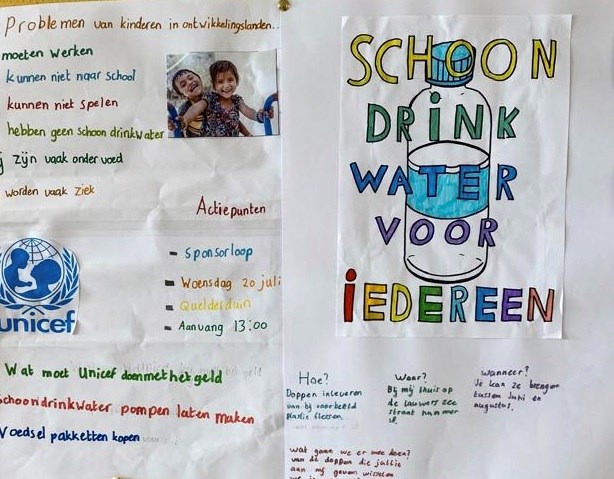 Problemen van kinderen in ontwikkelingslanden..
moeten werken
kunnen niet naar school
kunnen niet spelen
hebben geen schoon drinkwater
j zijn vaak onder voed
worden vaak ziek
Actiepunten
- Sponsorloop
- Woensdag 20 juli
- Quelderduin
- Aanvang 13:00
unicef
Wat moet Unicef doen met het geld
Schoon drinkwater pompen laten maken
Voedsel pakketten kopen
SCHOON
DRINK
WATER
VOOR
IEDEREEN
Hoe?
Doppen inleveren
van bij voorbeeld
plastic flessen.
Waar?
Bij mij thuis op
de Lauwers zee
straat nummer
Wanneer?
Je kan ze brengen
tussen Juni en
augustus.
Wat gaan we er mee doen?
van de doppen die jullie
aan mij geven wisselen